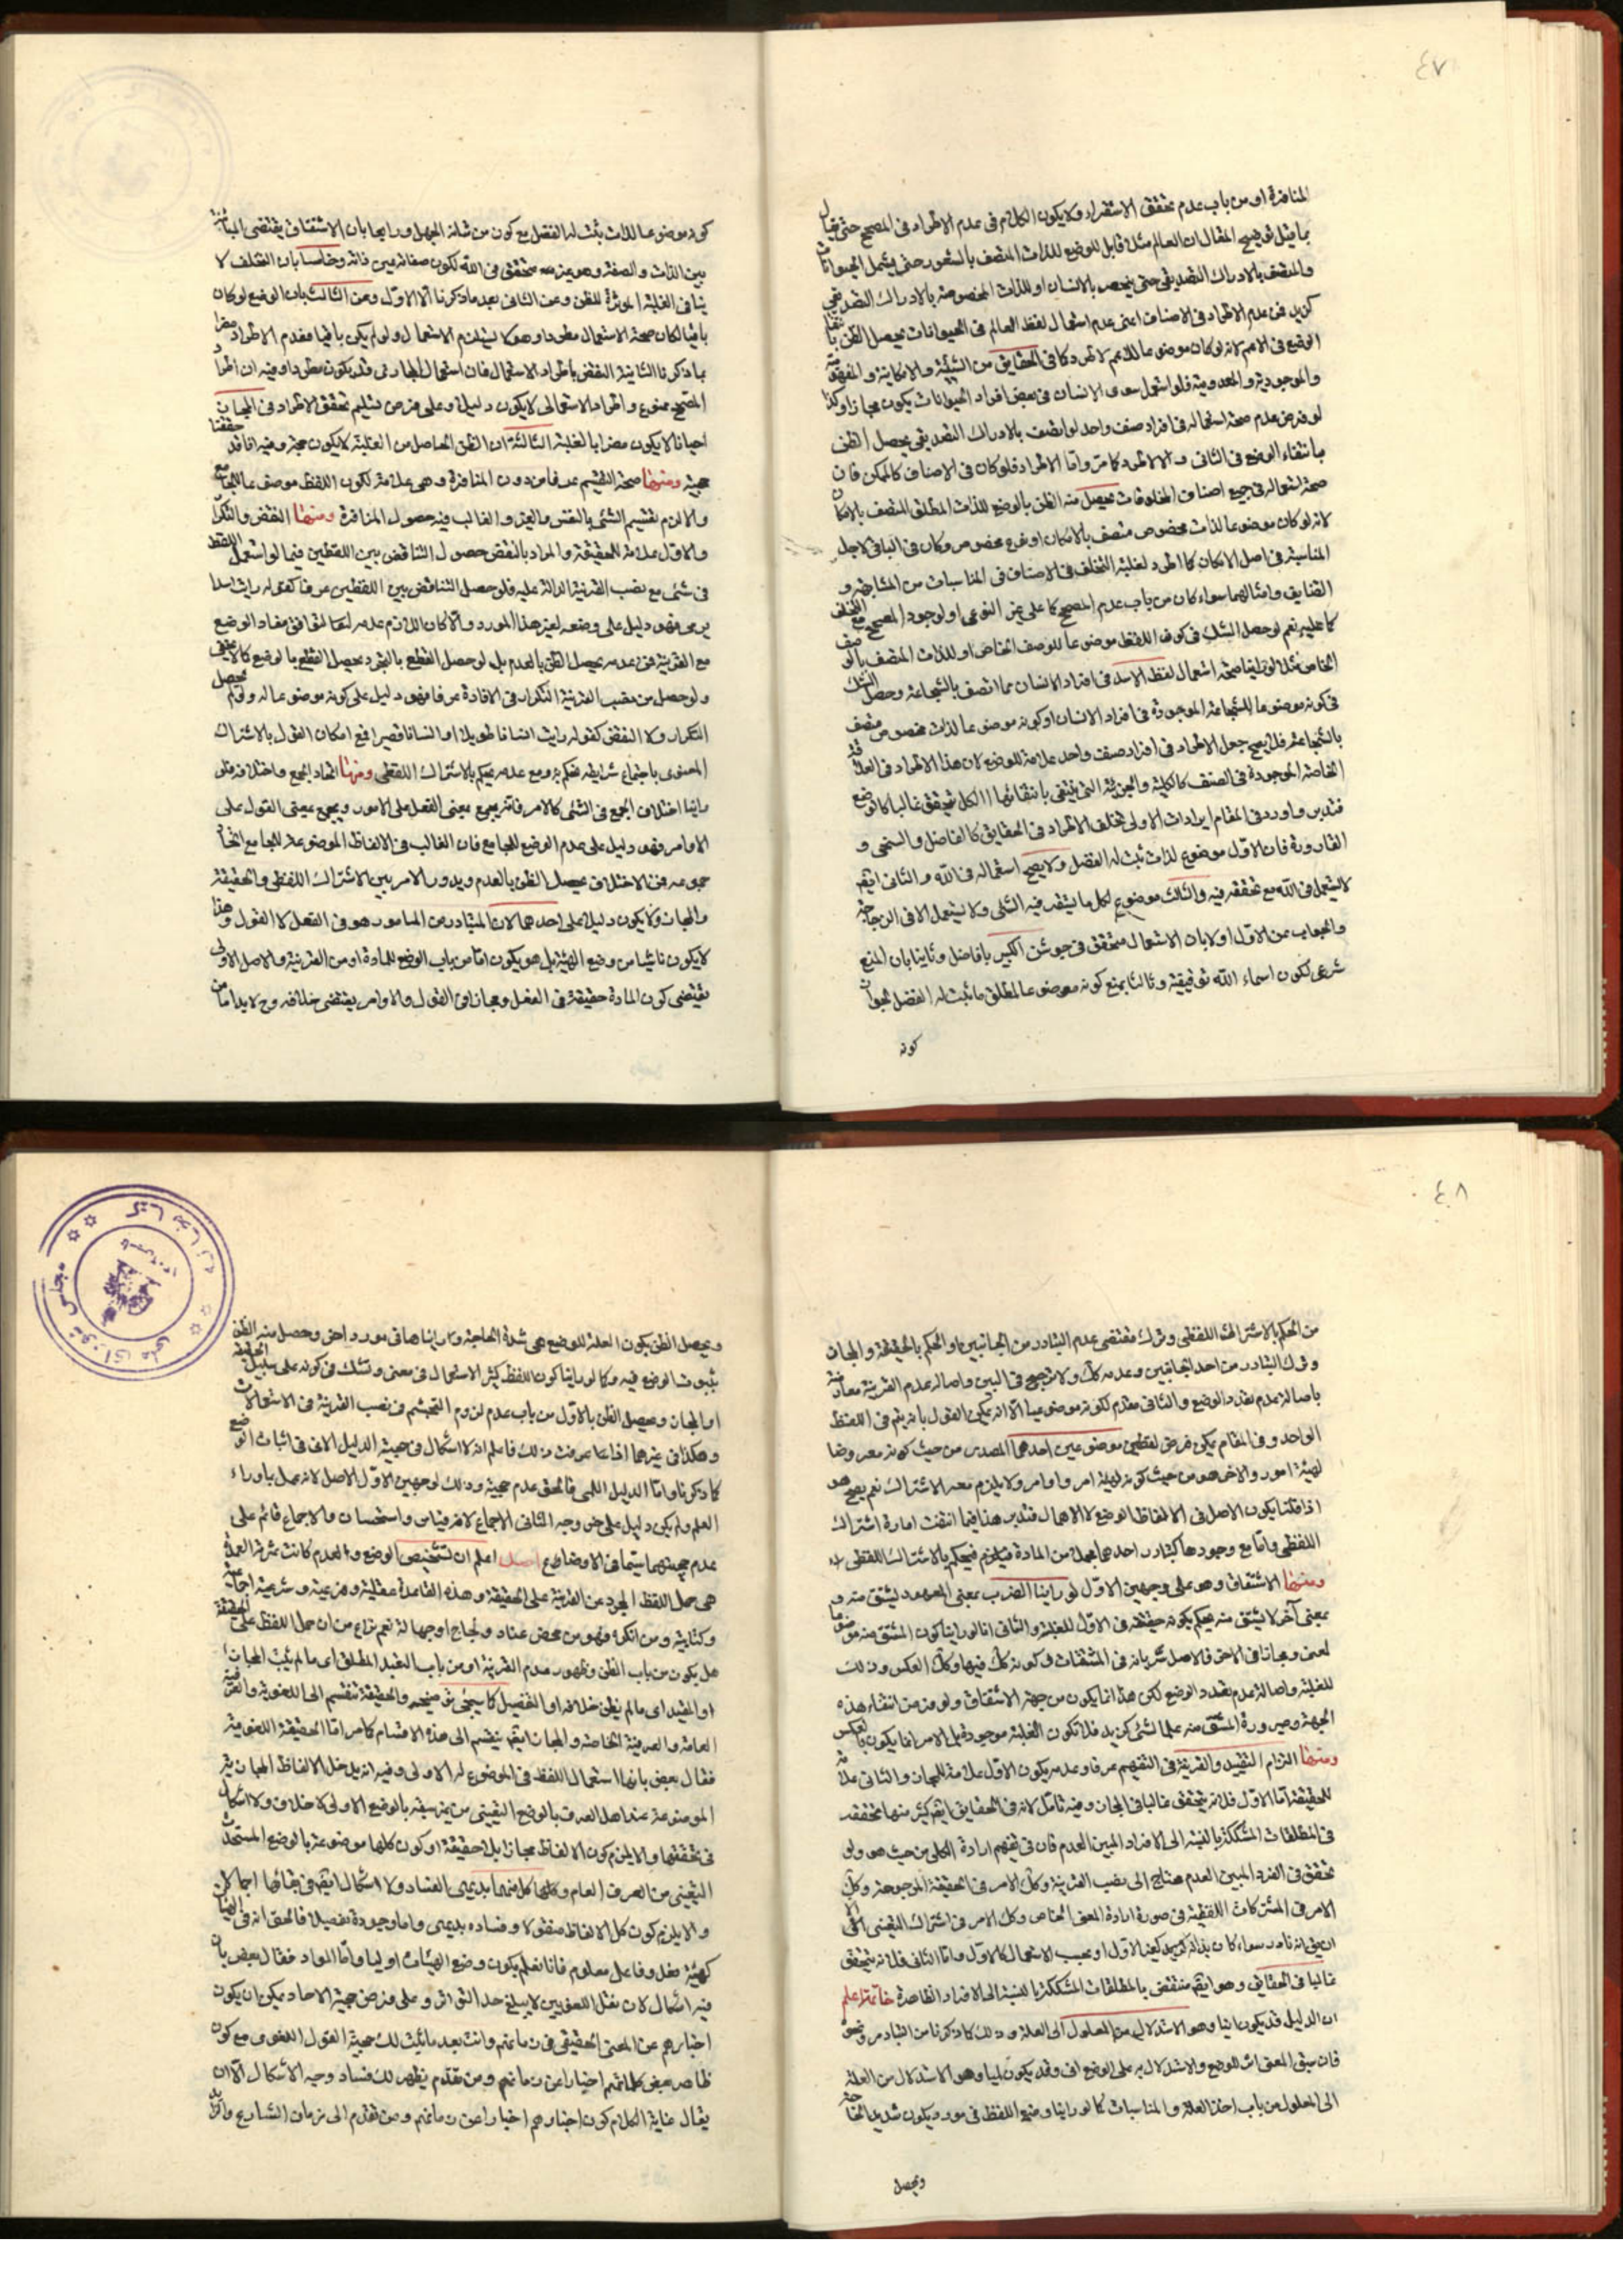 ٤٧
المنافرة او من باب عدم تحقق الاستقراء ولا يكون الكلام فى عدم الاطراد فى المصحح حتى يقال
بما يتل توضيح المقال ان العالم مثلا قابل للوضع للذات المتصف بالشعور حتى يشمل الحيوانات
والمتصف بالادراك التصديقى حتى يختص بالانسان او للذات المخصوصة بالادراك التصديقى
كزيد فمن عدم الاطراد فى الاصناف اعنى عدم استعمال لفظ العالم فى الحيوانات يحصل الظن بانتفاء
الوضع فى الاعم لانه لو كان موضوعا للاعم لاطرد كما فى الحقايق من الشيئية والامكانية والمفهومية
والموجودية والمعدومية فلو استعمل سوى الانسان فى بعض افراد الحيوانات يكون مجازا وكذا
لو فرض عدم صحة استعماله فى افراد صنف واحد لو اتصف بالادراك التصديقى يحصل الظن
بانتفاء الوضع فى الثانى والا لاطرد كما مر واما الاطراد فلو كان فى الاصناف كالممكن فان
صحة استعماله فى جميع اصناف المخلوقات يحصل منه الظن بالوضع للذات المطلق المتصف بالامكان
لانه لو كان موضوعا لذات مخصوص متصف بالامكان او فرع مخصوص وكان فى الباقى لاجل
المناسبة فى اصل الامكان كما اطرد لغلبة التخلف فى الاصناف فى المناسبات من المشابهة و
التضايف وامثالهما سواء كان من باب عدم المصحح كما على غير النوعى او لوجود المصحح مع التخلف
كما عليهم نعم لو حصل الشك فى كون اللفظ موضوعا للوصف الخاص او للذات المتصف بالوصف
الخاص مثلا لو راينا صحة استعمال لفظ الاسد فى افراد الانسان مما اتصف بالشجاعة وحصل الشك
فى كونه موضوعا للشجاعة الموجودة فى افراد الانسان او كونه موضوعا لذات مخصوص متصف
بالشجاعة فلا يصح جعل الاطراد فى افراد صنف واحد علامة للوضع لان هذا الاطراد فى العلاقة
الخاصة الموجودة فى الصنف كالكلية والجزئية التى ينتفى بانتفائها الكل يتحقق غالبا كالوضع
فتدبر واورد فى المقام ايرادات الاولى تخلف الاطراد فى الحقايق كالفاضل والسخى و
القارورة فان الاول موضوع لذات ثبت له الفضل ولا يصح استعماله فى الله والثانى ايضا
لا يستعمل فى الله مع تحققه فيه والثالث موضوع لكل ما يستقر فيه الشئ ولا يستعمل الا فى الزجاجة
والجواب عن الاول اولا بان الاستعمال متحقق فى جوشن الكبير يا فاضل وثانيا بان المنع
شرعى لكون اسماء الله توقيفية وثالثا بمنع كونه موضوعا لمطلق ما ثبت له الفضل لجواز
كونه
كونه موضوعا للذات ثبت له الفضل مع كون من شانه الجهل ورابعا بان الاشتقاق يقتضى المباينة
بين الذات والصفة وهو غير متحقق فى الله لكون صفاته عين ذاته وخامسا بان التخلف لا
ينافى الغلبة المورثة للظن وعن الثانى بعد ما ذكرنا الا الاول وعن الثالث بان الوضع لو كان
باقيا لكان صحة الاستعمال مطردا وهو لا يستلزم الاستعمال ولو لم يكن باقيا فعدم الاطراد مضر
بما ذكرنا الثانية النقض باطراد الاستعمال فان استعمال المجاز فى قد يكون مطردا وفيه ان اطراد
المصحح ممنوع واطراد الاستعمالى لا يكون دليلا وعلى فرض تسليم تحقق الاطراد فى المجاز
احيانا لا يكون مضرا بالغلبة الثالثة ان الظن الحاصل من الغلبة لا يكون حجة وفيه انا قد حققنا
حجية ومنها صحة التقسيم عرفا من دون المنافرة وهى علامة لكون اللفظ موضوعا للجامع
والا لزم تقسيم الشئ بالنفس والغير والغالب فيه حصول المنافرة ومنها النقض والتكرار
والاول علامة للحقيقة والمراد بالنقض حصول التناقض بين اللفظين فيما لو استعمل اللفظ
فى شئ مع نصب القرينة الدالة عليه فلو حصل التناقض بين اللفظين عرفا كقوله رايت اسدا
يرمى فهو دليل على وضعه لغير هذا المورد والا كان اللازم عدمه لتوافق مفاد الوضع
مع القرينة فمن عدمه يحصل الظن بالعدم بل لو حصل القطع بالتجرد يحصل القطع بالوضع كما لا يخفى
ولو حصل من نصب القرينة التكرار فى الافادة عرفا فهو دليل على كونه موضوعا له ولو لم يحصل
التكرار ولا النقض كقوله رايت انسانا طويلا او انسانا قصيرا فمع امكان القول بالاشتراك
المعنوى باجتماع شرايطه نحكم به ومع عدمه نحكم بالاشتراك اللفظى ومنها اتحاد الجمع واختلافه فلو
راينا اختلاف الجمع فى الشئ كالامر فانه يجمع بمعنى الفعل على الامور ويجمع بمعنى القول على
الاوامر فهو دليل على عدم الوضع للجامع فان الغالب فى الالفاظ الموضوعة للجامع اتحاد
جموعه فمن الاختلاف يحصل الظن بالعدم ويدور الامر بين الاشتراك اللفظى والحقيقة
والمجاز ولا يكون دليلا على احدهما لان المتبادر من المامور هو فى الفعل لا القول وهذا
لا يكون ناشئا من وضع الهيئة بل هو يكون اما من باب الوضع للمادة او من القرينة والاصل الاولى
يقتضى كون المادة حقيقة فى الفعل ومجازا فى القول والاوامر يقتضى خلافه وح لا بد اما من
٤٨
من الحكم بالاشتراك اللفظى وترك مقتضى عدم التبادر من الجانبين او الحكم بالحقيقة والمجاز
وترك التبادر من احد الجانبين وعدمه كك ولا ترجيح فى البين واصالة عدم القرينة معارضة
باصالة عدم تعدد الوضع والثانى مقدم لكونه موضوعيا الا انه يمكن القول بانه يتم فى اللفظ
الواحد وفى المقام يمكن فرض لفظين موضوعين احدهما المصدر من حيث كونه معروضا
لهيئة امور والاخر هو من حيث كونه لهيئة امر واوامر ولا يلزم معه الاشتراك نعم يصح هو
اذا قلنا يكون الاصل فى الالفاظ الوضع لا الاهمال فتدبر هذا فيما انتفت امارة اشتراك
اللفظى واما مع وجودها كتبادر احدهما بمحل من المادة فيلزم فيحكم بالاشتراك اللفظى
ومنها الاشتقاق وهو على وجهين الاول لو راينا الضرب بمعنى المعهود ليشتق منه و
بمعنى آخر لا يشتق منه يحكم بكونه حقيقة فى الاول للغلبة والثانى انا لو راينا كون المشتق منه موضوعا
لمعنى ومجازا فى الاخر فالاصل سريانه فى المشتقات فى كونه كك فيها وكك العكس وذلك
للغلبة واصالة عدم تعدد الوضع لكن هذا انما يكون من جهة الاشتقاق ولو فرض انتفاء هذه
الجهة وصيرورة المشتق منه علما لشئ كزيد فلا تكون الغلبة موجودة بل الامر انما يكون بالعكس
ومنها التزام التقييد والقرينة فى التفهيم عرفا وعدمه يكون الاول علامة للمجاز والثانى علامة
للحقيقة اما الاول فلانه يتحقق غالبا فى المجاز وفيه تامل لانه فى الحقايق ايضا كثير منها تحققه
فى المطلقات المشككة بالنسبة الى الافراد المبين العدم فان فى تفهيم ارادة الكلى من حيث هو ولو
تحقق فى الفرد المبين العدم محتاج الى نصب القرينة وكك الامر فى الحقيقة المرجوحة وكك
الامر فى المشتركات اللفظية فى صورة ارادة المعنى الخاص وكك الامر فى اشتراك التعينى الا
ان يق انه نادر سواء كان بذاته كزيد كعن الاول او بحسب الاستعمال كالاول واما الثانى فلانه يتحقق
غالبا فى الحقائق وهو ايضا منتقض بالمطلقات المشككة بالنسبة الى الافراد الظاهرة خاتمة اعلم
ان الدليل قد يكون انيا وهو الاستدلال من المعلول الى العلة وذلك كما ذكرنا من التبادر ونحوه
فان سبق المعنى اثر للوضع والاستدلال به على الوضع انى وقد يكون لميا وهو الاستدلال من العلة
الى المعلول من باب اخذ العلة والمناسبات كما لو راينا وضع اللفظ فى مورد يكون شديد الحاجة
ويحصل
ويحصل الظن بكون العلة للوضع هى شدة الحاجة وراينا ها فى مورد اخر وحصل منه الظن
بثبوت الوضع فيه وكما لو راينا كون اللفظ كثير الاستعمال فى معنى ونشك فى كونه على سبيل الحقيقة
او المجاز ويحصل الظن بالاول من باب عدم لزوم التجشم فى نصب القرينة فى الاستعمالات
وهكذا فى غيرهما اذا عرفت ذلك فاعلم انه لا اشكال فى حجية الدليل الانى فى اثبات الوضع
كما ذكرنا واما الدليل اللمى فالحق عدم حجية وذلك لوجهين الاول الاصل لانه عمل بما وراء
العلم ولم يكن دليل على خروجه الثانى الاجماع لانه قياس واستحسان والاجماع قائم على
عدم حجيتهما سيما فى الاوضاع اصل اعلم ان تشخيص الوضع والعدم كانت ثمرة العملية
هى حمل اللفظ المجرد عن القرينة على الحقيقة وهذه القاعدة عقلية وعرفية وشرعية اجماعية
وكتابية ومن انكره فهو من محض عناد ولجاج او جهالة نعم نزاع من ان حمل اللفظ على الحقيقة
هل يكون من باب الظن وظهور عدم القرينة او من باب التعبد المطلق اى ما لم يثبت المجاز
او المقيد اى ما لم يظن خلافه او التفصيل كما سيجئ توضيحه والحقيقة تنقسم الى اللغوية والعرفية
العامة والعرفية الخاصة والمجاز ايضا ينقسم الى هذه الاقسام كما مر اما الحقيقة اللغوية
فقال بعض بانها استعمال اللفظ فى الموضوع له الاولى وفيه انه يدخل الالفاظ المجازية
الموضوعة عند اهل العرف بالوضع التعينى من غير سبقه بالوضع الاولى لا خلاف ولا اشكال
فى تحققها والا لزم كون الالفاظ مجازا بلا حقيقة او كون كلها موضوعة بالوضع المستحدث
التعينى من العرف العام وكلاهما بديهى الفساد ولا اشكال ايضا فى بقائها اجمالا
والا يلزم كون كل الالفاظ منقولا وفساده بديهى واما وجودة تفصيلا فالحق انه فى الهيئات
كهيئة فعل وفاعل معلوم فانا نعلم بكون وضع الهيئات اوليا واما المواد فقال بعض بان
فيه اشكال لان نقل اللغويين لا يبلغ حد التواتر وعلى فرض حجية الاحاد يمكن ان يكون
اخبارهم عن المعنى الحقيقى فى زمانهم وانت بعد ما ثبت لك حجية القول اللغوى مع كون
ظاهر بعض كلماتهم اخبارا عن زمانهم ومن تقدم يظهر لك فساد وجه الاشكال الا ان
يقال غاية الكلام كون اخبارهم اخبارا عن زمانهم ومن تقدم الى زمان الشارع واما